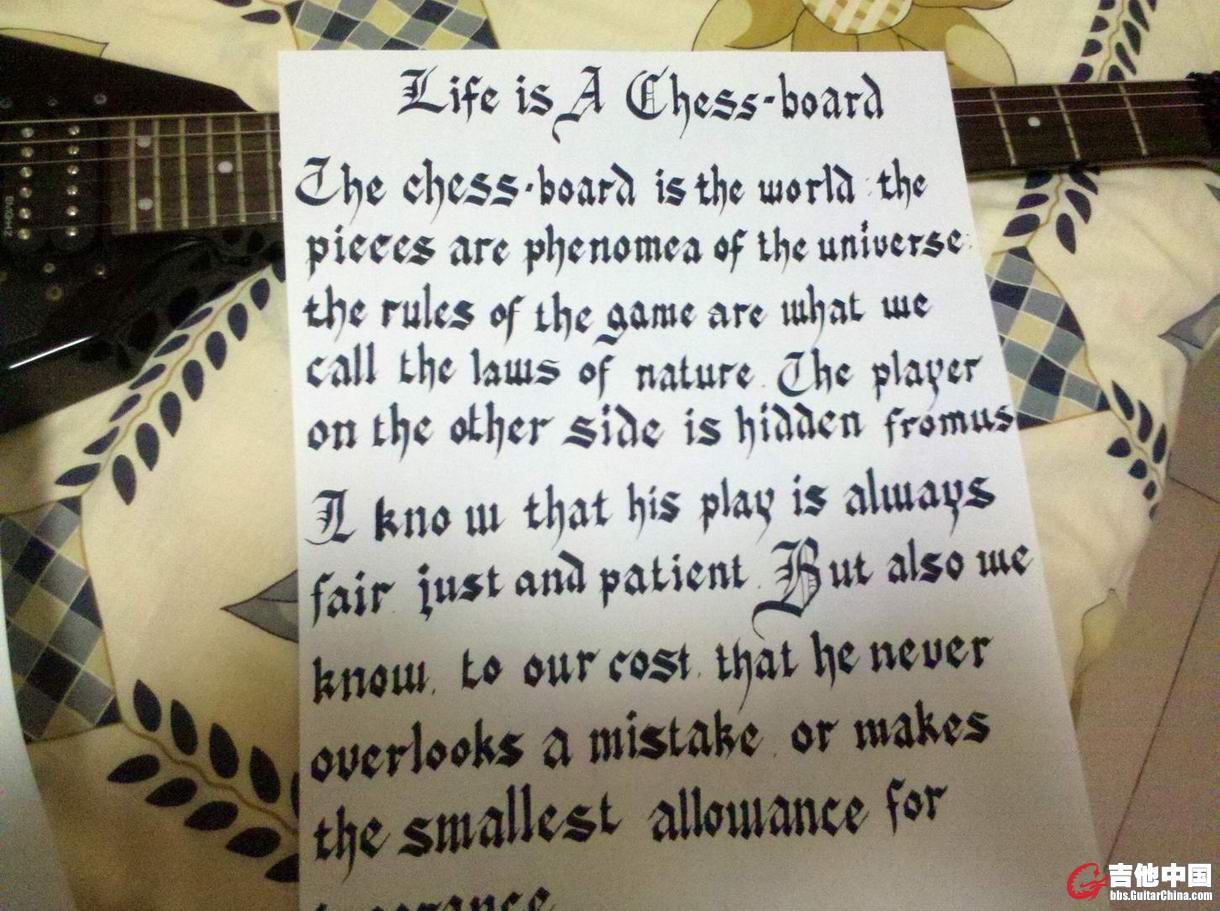 Life is A Chess-board
The chess-board is the world. the
pieces are phenomea of the universe.
the rules of the game are what we
call the laws of nature. The player
on the other side is hidden from us
I know that his play is always
fair. just and patient. But also we
know. to our cost. that he never
overlooks a mistake. or makes
the smallest allowance for
吉他中国
bbs.GuitarChina.com